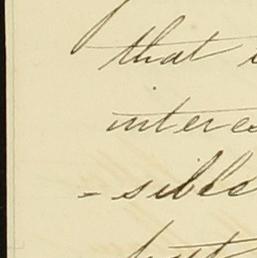 that
interes
= sible
but